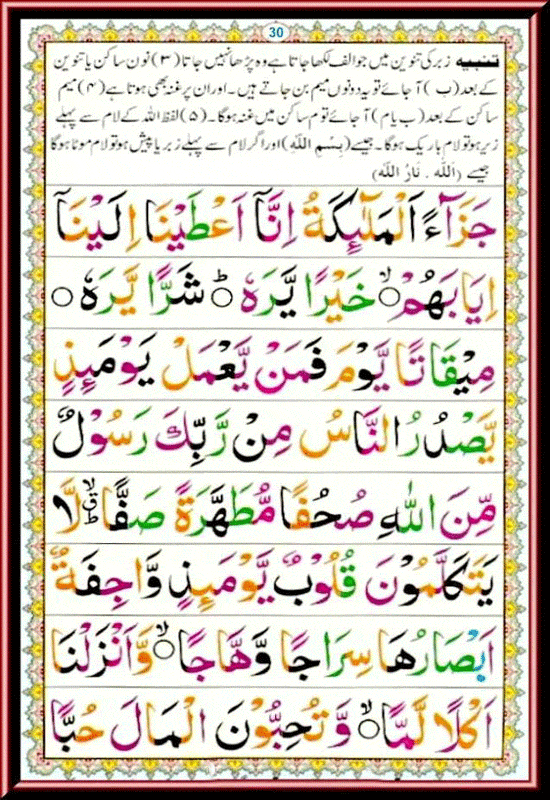 30
تنبیہ زبر کی تنوین میں جو الف لکھا جاتا ہے وہ پڑھا نہیں جاتا (۳) نون ساکن یا تنوین
کے بعد (ب) آجائے تو یہ دونوں میم بن جاتے ہیں۔ اور ان پر غنہ بھی ہوتا ہے (۴) میم
ساکن کے بعد (ب یا م) آجائے تو م ساکن میں غنہ ہوگا۔ (۵) لفظ اللہ کے لام سے پہلے
زیر ہو تو لام باریک ہوگا۔ جیسے (بِسْمِ اللّٰهِ) اور اگر لام سے پہلے زبر یا پیش ہو تو لام موٹا ہوگا
جیسے (اَللّٰه . نَارُ اللّٰه)
جَزَآءً اَلْمَلٰٓئِكَةُ اِنَّاۤ اَعْطَيْنَا اِلَيْنَاۤ
اِيَابَهُمْ ۙ خَيْرًا يَّرَهٗ ؕ شَرًّا يَّرَهٗ ○
مِيْقَاتًا يَّوْمَ فَمَنْ يَّعْمَلْ يَوْمَئِذٍ
يَّصْدُرُ النَّاسُ مِنْ رَّبِّكَ رَسُوْلٌ
مِّنَ اللّٰهِ صُحُفًا مُّطَهَّرَةً صَفًّا لَّا
يَتَكَلَّمُوْنَ قُلُوْبٌ يَّوْمَئِذٍ وَّاجِفَةٌ
اَبْصَارُهَا سِرَاجًا وَّهَّاجًا ۙ وَّاَنْزَلْنَا
اَكْلًا لَّمًّا ۙ وَّتُحِبُّوْنَ الْمَالَ حُبًّا